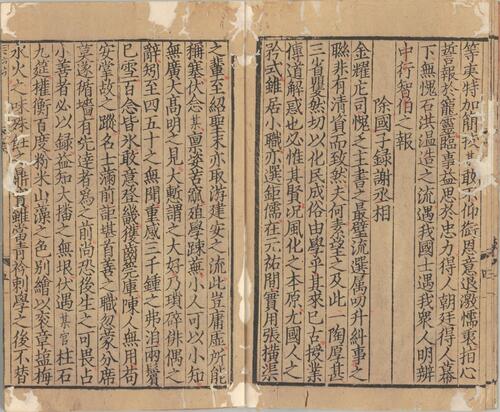 等夷特加簡拔其敢不仰銜恩意退激懦衷指心
誓報於寵靈臨事益思於忠力得人朝廷得人幕
下無愧石洪溫造之流遇我國士遇我眾人明辨
中行智伯之報
除國子錄謝丞相
金耀庀司愧之主書之最璧流選屬叨升糾事之
聯非有清資而致然夫何素望之及此一陶厚其
三省瞿然切以化民成俗由學乎其來已古授業
傳道解惑也必推其賢況風化之本原尤國人之
矜式雖居小職亦選鉅儒在元祐間實用張橫渠
之輩至紹聖末亦取游建安之流此豈庸虛所能
稱塞伏念某賦姿若窳殖學踈蕪小人可以小知
無廣大高明之見大慚謂之大好乃瑣碎俳偶之
辭矧至四五十之無聞重感三千鍾之弗洎兩鬢
已雪百念皆氷敢意登畿獲齒學庫陳人無用苟
安掌故之蹤名士滿前詎甚首善之職忽蒙分席
莫遂循墻有先達者為之前尚恐後生之可畏占
小善者必以錄益知大播之無垠伏遇某官柱石
九筵權衡百度粉米山藻之色別繪以章塩梅
水火之味殊
之後不替